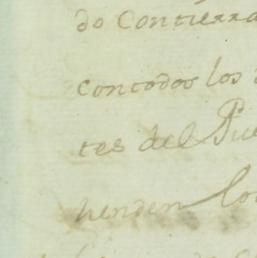 do Contierra
contodos los
tes del Pue
henden lo